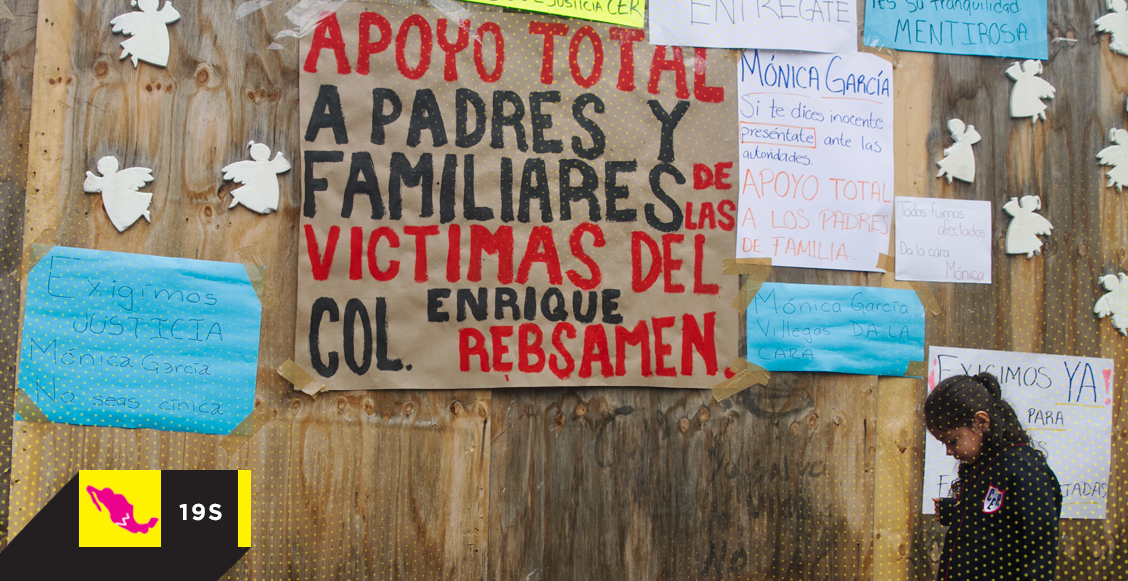 JUSTICIA CER
ENTREGATE
es su tranquilidad
MENTIROSA
APOYO TOTAL
A PADRES Y
FAMILIARES DE
LAS
VICTIMAS DEL
COL. ENRIQUE
REBSAMEN.
MÓNICA GARCÍA
Si te dices inocente
preséntate ante las
autoridades.
APOYO TOTAL
A LOS PADRES
DE FAMILIA.
Todos fuimos
afectados
Da la cara
Mónica
Exigimos
JUSTICIA
Mónica García
No seas cínica
Mónica García
Villegas DA LA
CARA
EXIGIMOS YA!
PARA
TADAS
CER
19S